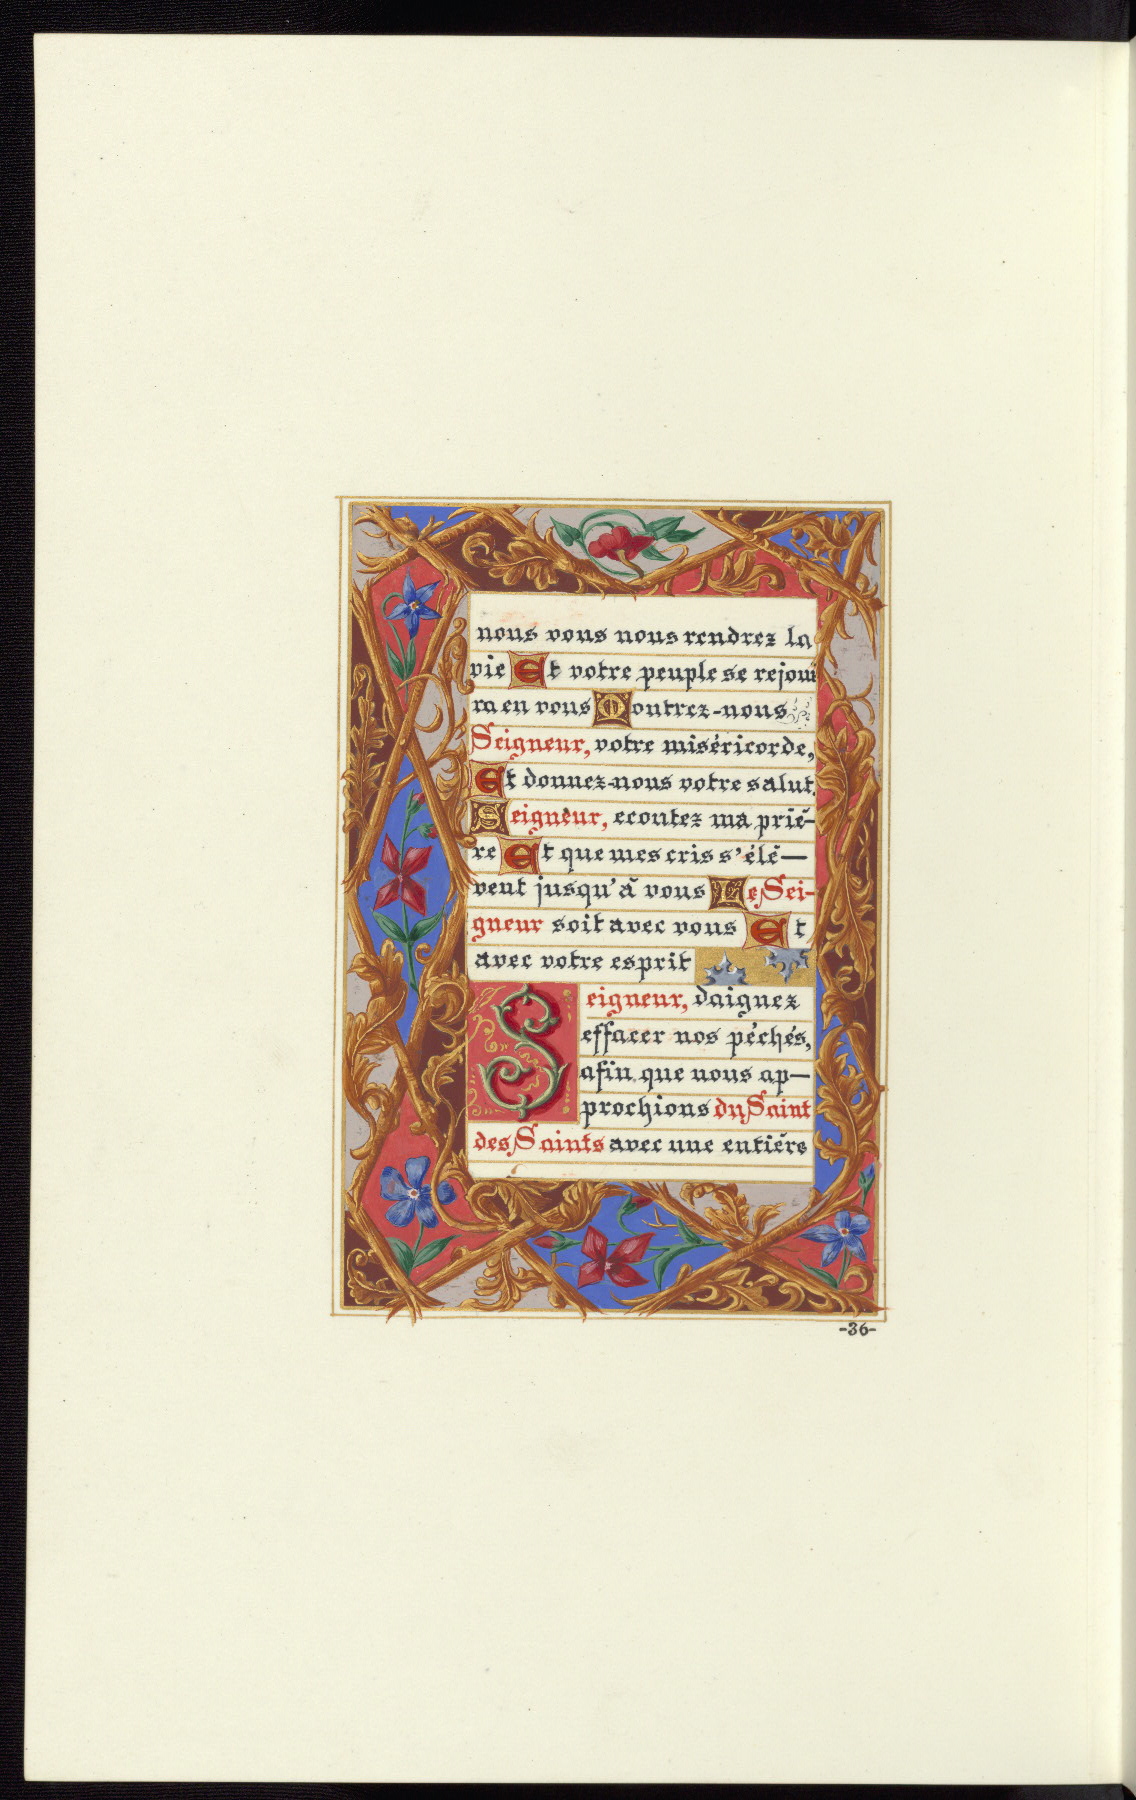 nous vous nous rendrez la
vie Et votre peuple se rejoui
ra en vous Montrez-nous
Seigneur, votre miséricorde,
Et donnez-nous votre salut.
Seigneur, ecoutez ma priè-
re Et que mes cris s'élè—
vent jusqu'à vous Le Sei-
gneur soit avec vous Et
avec votre esprit
Seigneur, daignez
effacer nos péchés,
afin que nous ap—
prochions du Saint
des Saints avec une entière
-36-